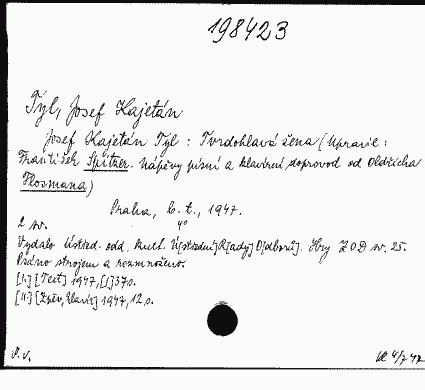 198423
Tyl, Josef Kajetán
Josef Kajetán Tyl : Tvrdohlavá žena (Upravil :
František Spitzer. Nápěvy písní a klavírní doprovod od Oldřicha
Flosmana)
Praha, b. t., 1947.
2 sv. 4°
Vydalo Ústřed. odd. kult. Ú[střední] R[ady] O[dborů]. Hry ZOD sv. 25.
Psáno strojem a rozmnoženo.
[I.] [Text] 1947, [1] 37 s.
[II.] [Zpěv, klavír] 1947, 12 s.
P. v.